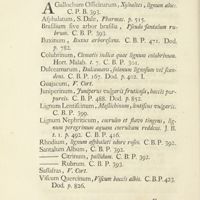 AGallochum Officinarum, Xylaloes, lignum aloes.
C. P. B. 393.
Asphalatum, S. Dale, Pharmac. p. 515.
Brasilium sive arbor brasilia, Pseudo santalum rubrum. C. B. P. 393.
Buxinum, Buxus arborescens. C. B. P. 471. Dod.
p. 782.
Colubrinum, Clematis indica quæ lignum colubrinum.
Hort. Malab. t. 7. C. B. P. 301.
Dulcamarum, Dulcamara, solanum lignosum vel scandens. C. B. P. 167. Dod. p. 402. I.
Guajacum, V. Cort.
Juniperinum, Juniperus vulgaris fruticosa, baccis purpureis. C. B. P. 488. Dod. p. 852.
Lignum Lentiscinum, Mastichinum, lentiscus vulgaris.
C. B. P. 399.
Lignum Nephriticum, coeruleo et flavo tingens, lignum peregrinum aquam coeruleam reddens. J. B.
t. 1. p. 492. C. B. P. 416.
Rhodium, lignum asphalati odore roseo. C. B. P. 392.
Santalum Album, C. B. P. 392.
—— Citrinum, pallidum. C. B. P. 392.
—— Rubrum. C. B. P. 392.
Sassafras, V. Cort.
Viscum Quercinum, Viscum baccis albis. C. B. P. 423.
Dod. p. 826.